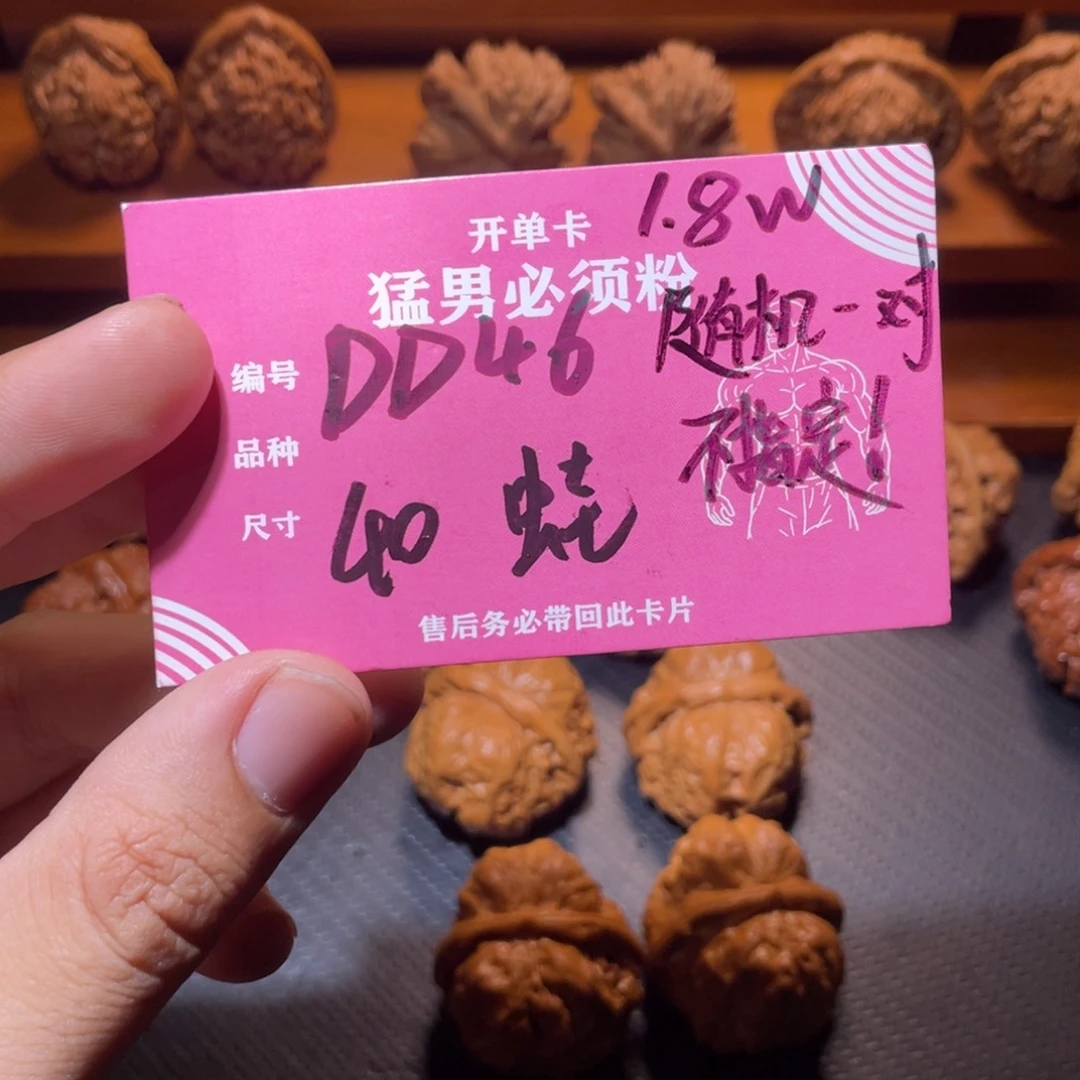 开单卡
1.8w
猛男必须粉
随机一对
编号 DD46
不指定!
品种
尺寸 40 蛙
售后务必带回此卡片